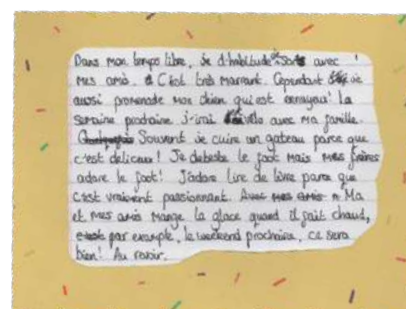 Dans mon temps libre, Je d'habitude sors avec
mes amis. C'est très marrant. Cependant
aussi promenade mon chien qui est ennuyeux! La
semaine prochaine j'irai vélo avec ma famille.
Souvent Je cuire un gateau parce que
c'est delicieux! Je deteste le foot mais mes frères
adore le foot! J'adore lire de livre parce que
c'est vraiment passionnant. Avec mes amis Ma
et mes amis mange la glace quand il fait chaud,
par example, le weekend prochaine, ce sera
bien! Au revoir.